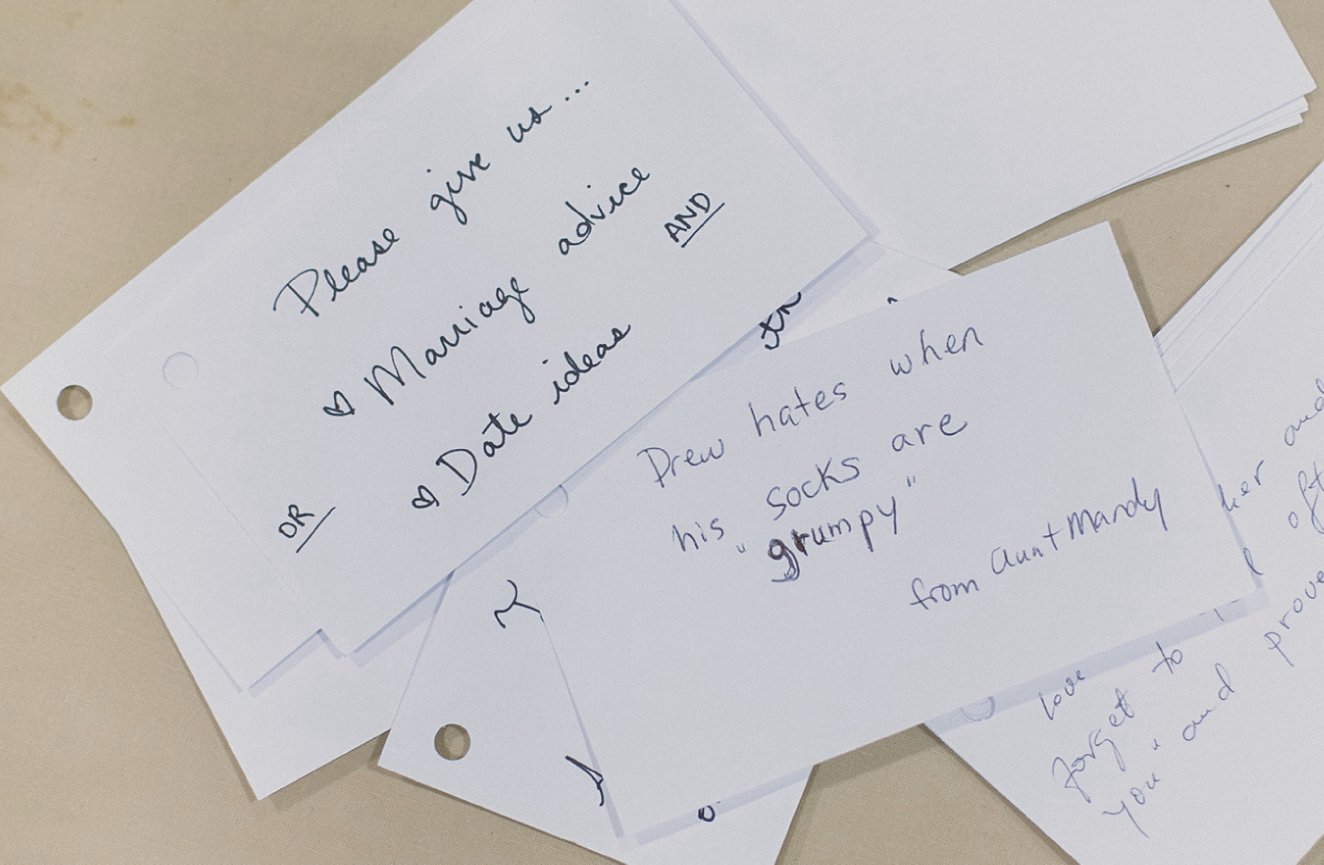 Please give us...
♡ Marriage advice
AND
♡ Date ideas
OR
Drew hates when
his socks are
"grumpy"
from Aunt Mandy
her and
love
forget to
you" and prove